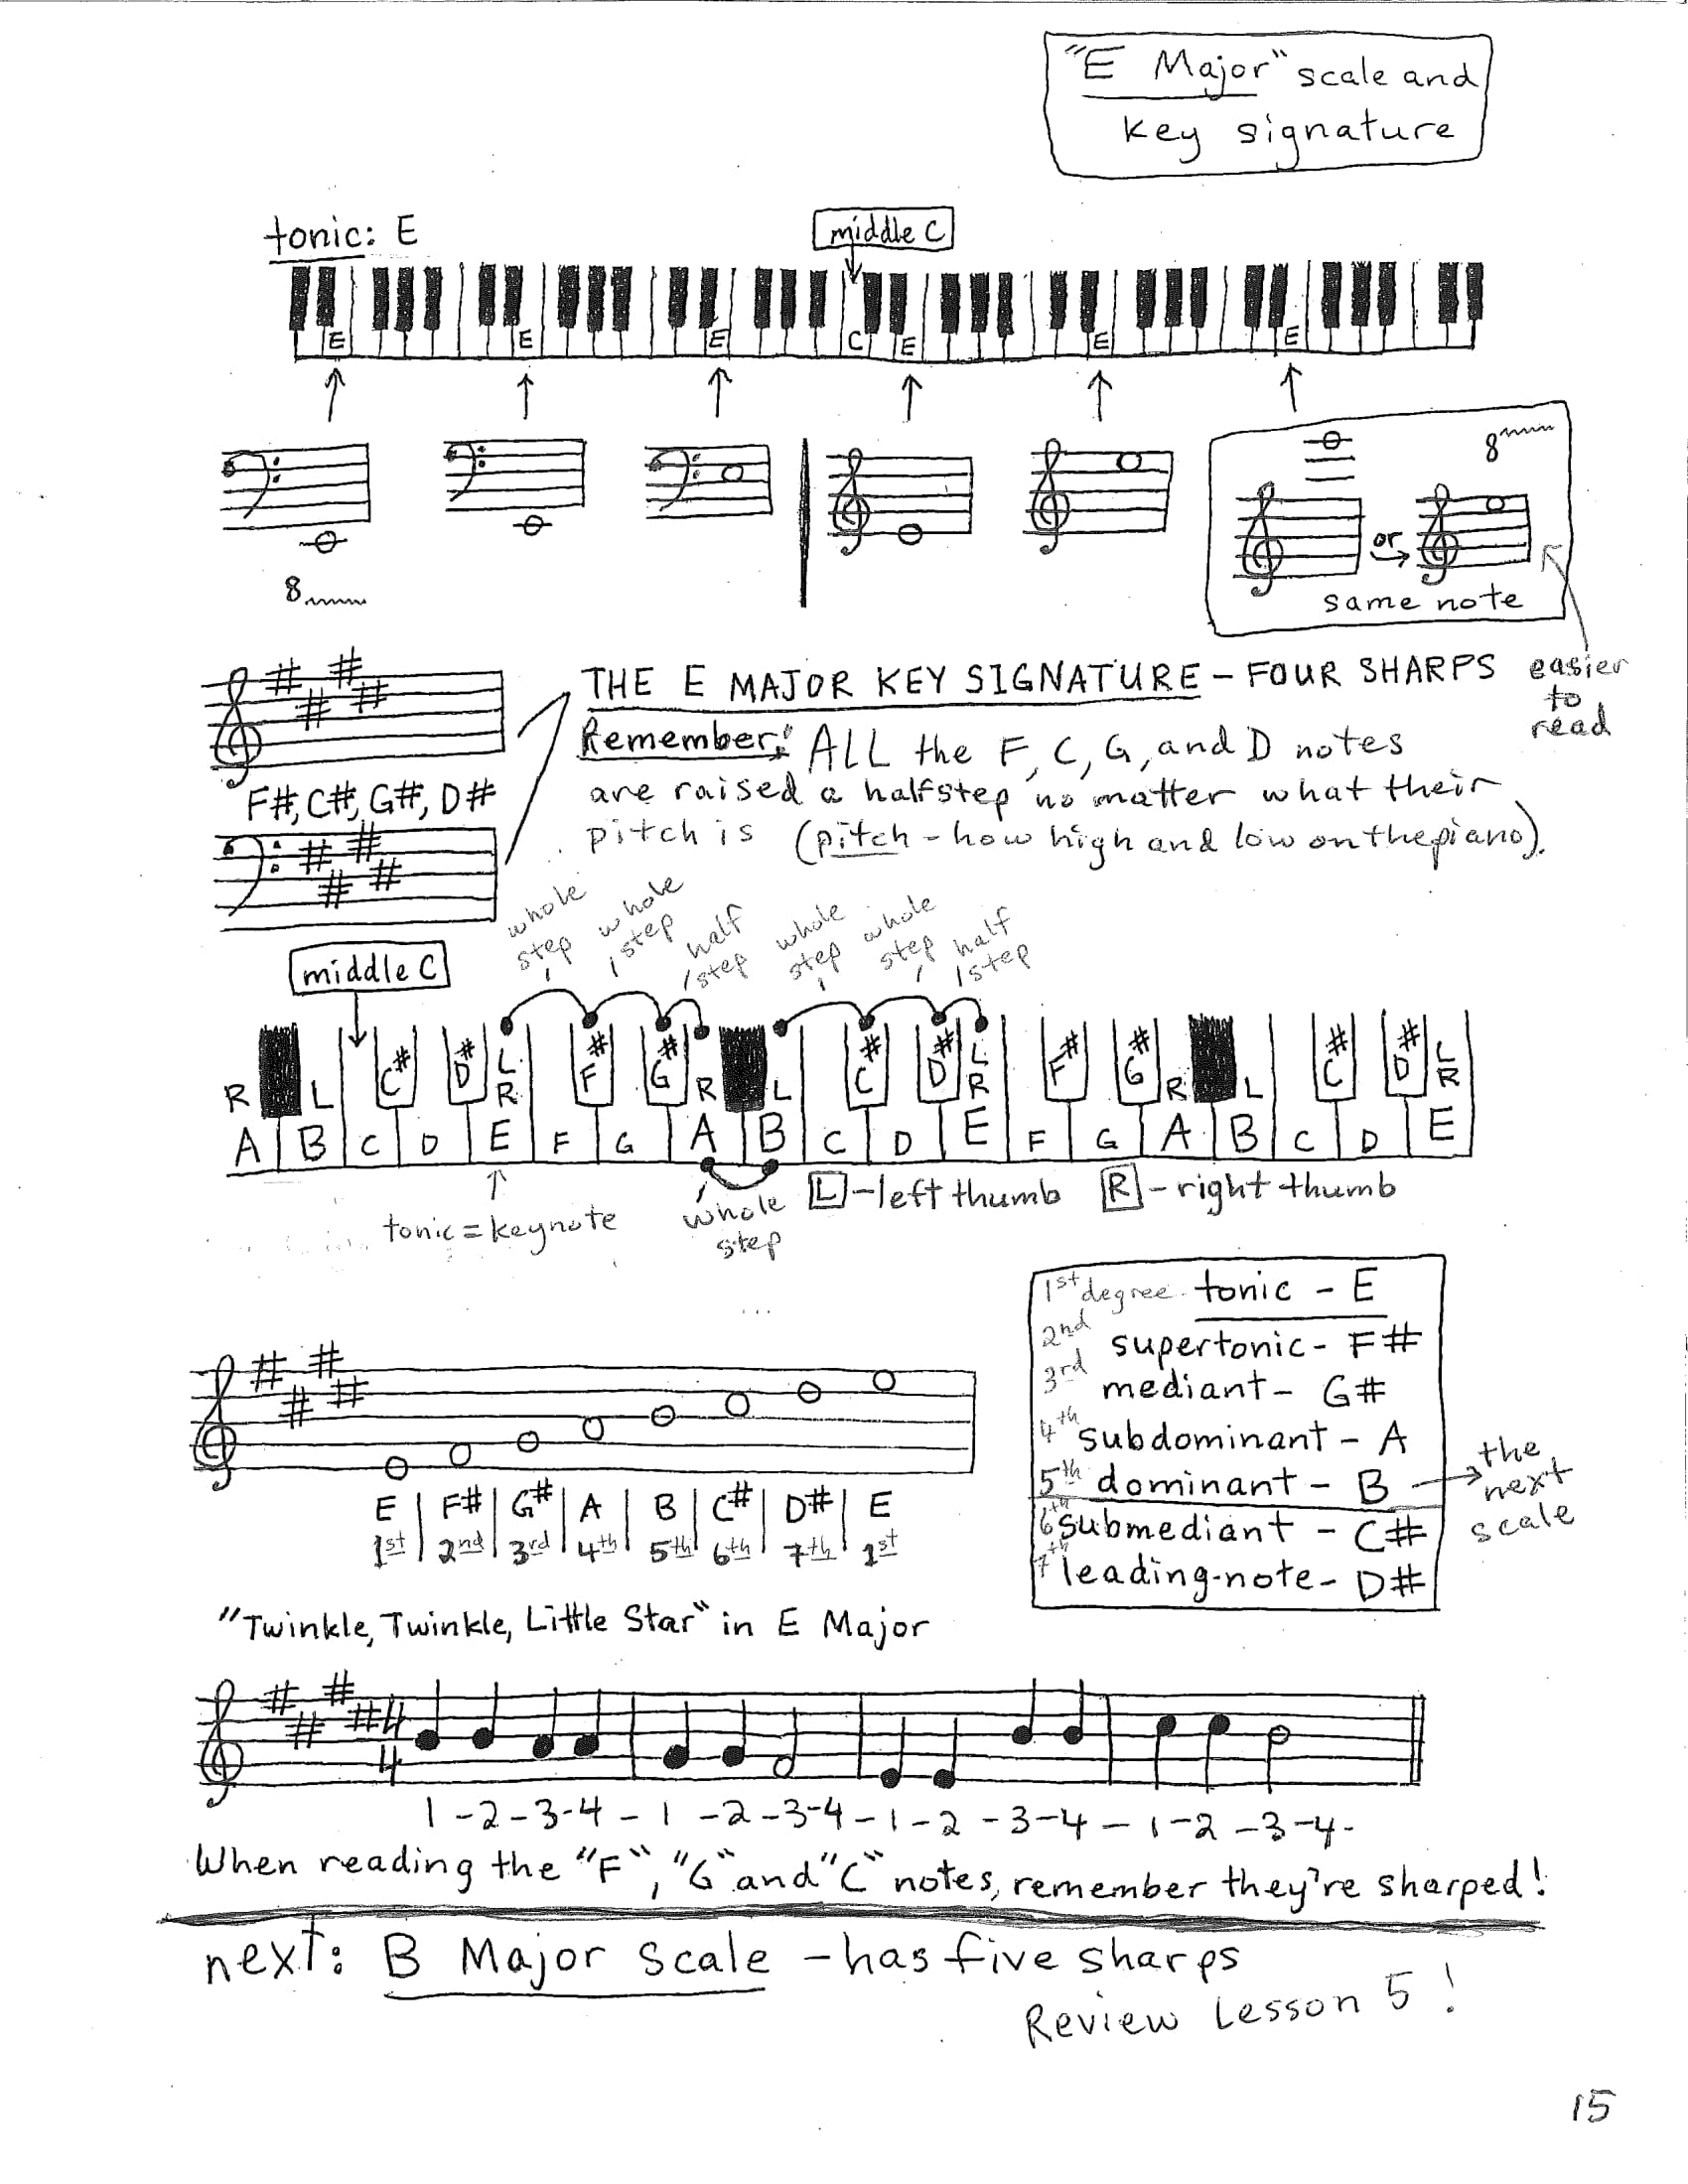 "E Major" scale and
key signature
tonic: E
middle C
E E E C E E E
8
8
or
same note
easier
to
read
THE E MAJOR KEY SIGNATURE – FOUR SHARPS
Remember: ALL the F, C, G, and D notes
are raised a halfstep no matter what their
pitch is (pitch – how high and low on the piano).
F#, C#, G#, D#
whole step whole step half step whole step whole step half step
middle C
R L C# D# L R F# G# R L C# D# L R F# G# R L C# D# L R
A B C D E F G A B C D E F G A B C D E
L – left thumb R – right thumb
tonic = keynote
whole step
1st degree - tonic - E
2nd supertonic - F#
3rd mediant - G#
4th subdominant - A
5th dominant - B → the next scale
6th submediant - C#
7th leading-note - D#
E | F# | G# | A | B | C# | D# | E
1st | 2nd | 3rd | 4th | 5th | 6th | 7th | 1st
"Twinkle, Twinkle, Little Star" in E Major
4
4
1 - 2 - 3 - 4 - 1 - 2 - 3 - 4 - 1 - 2 - 3 - 4 - 1 - 2 - 3 - 4 -
When reading the "F", "G" and "C" notes, remember they're sharped!
next: B Major scale – has five sharps
Review Lesson 5!
15